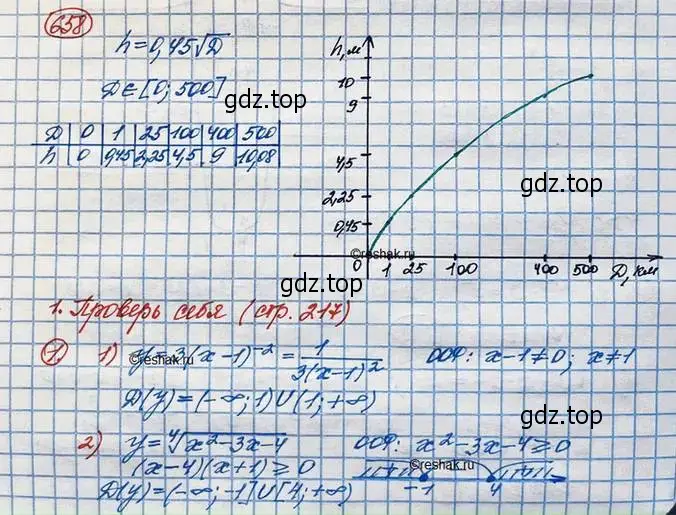 658
h = 0,45√D
D ∈ [0; 500]
gdz.top
D | 0 | 1 | 25 | 100 | 400 | 500
h | 0 | 0,45 | 2,25 | 4,5 | 9 | 10,08
h, м
10
9
4,5
2,25
0,45
gdz.top
©reshak.ru
0 1 25 100 400 500 D, км
gdz.top
1. Проверь себя (стр. 217)
1. 1) y = 3(x-1)⁻² = 1/3(x-1)² ООФ: x-1≠0; x≠1
©reshak.ru
D(y) = (-∞; 1)∪(1; +∞)
2) y = ⁴√x²-3x-4 ООФ: x²-3x-4⩾0
(x-4)(x+1)⩾0
©reshak.ru
-1 4
D(y) = (-∞; -1]∪[4; +∞)
gdz.top